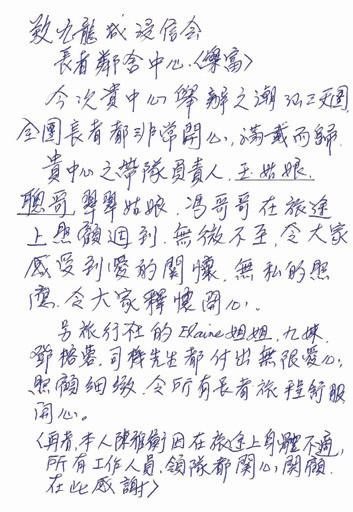 致九龍城浸信會
長者鄰舍中心〈樂富〉
今次貴中心舉辦之潮汕三天團,
全團長者都非常開心,滿載而歸.
貴中心之帶隊負責人,王姑娘,
聰哥,翠翠姑娘,馮哥哥在旅途
上照顧週到,無微不至,令大家
感受到愛的關懷,無私的照
應,令大家釋懷開心。
另旅行社的Elaine姐姐,九妹,
鄧 蓉,司機先生都付出無限愛心,
照顧細緻,令所有長者旅程舒服
開心。
〈再者,本人陳雅 因在旅途上身體不適,
所有工作人員,領隊都關心,關顧
在此感謝〉